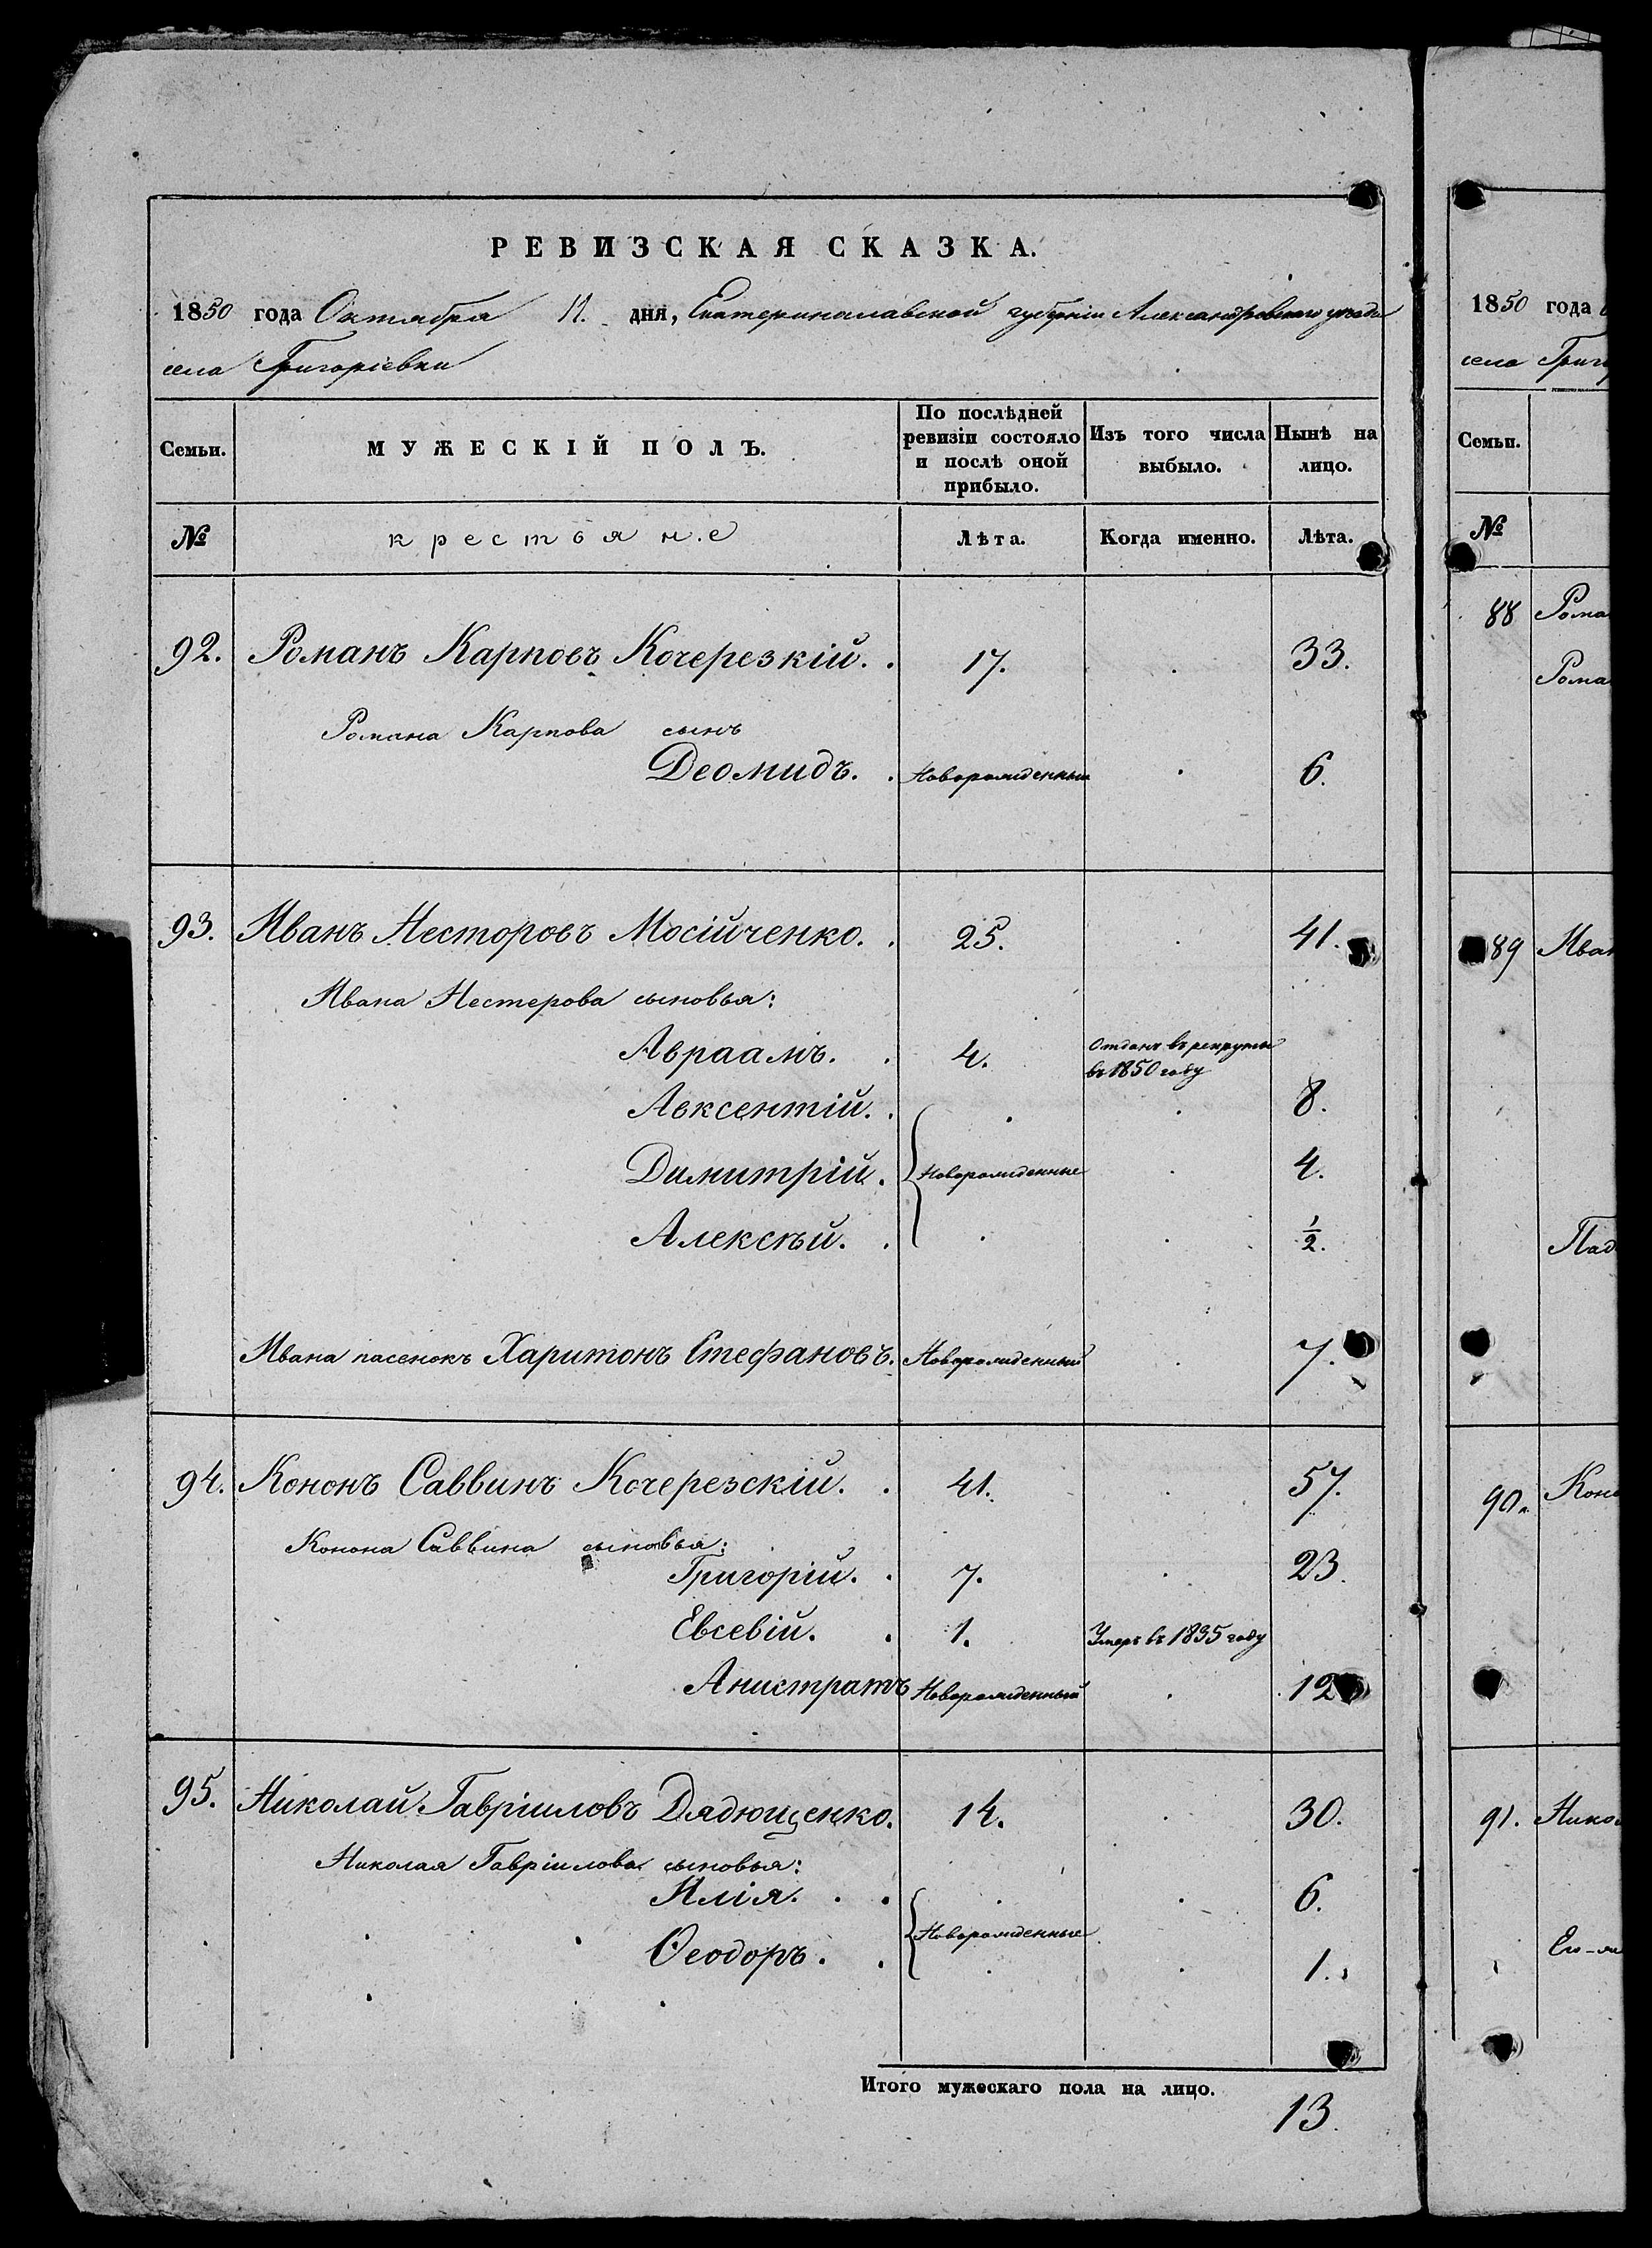 РЕВИЗСКАЯ СКАЗКА.
1850 года Октября 11. дня, Екатеринославской губерніи Александровского уезда
села Григоріевки
Семьи. МУЖЕСКІЙ ПОЛЪ. По послѣдней ревизіи состояло и послѣ оной прибыло. Изъ того числа выбыло. Нынѣ на лицо.
№ крестьяне Лѣта. Когда именно. Лѣта.
92. Романъ Карповъ Кочерезкій. . 17. . 33.
Романа Карпова сынъ
Деомидъ. . Новорожденный . 6.
93. Иванъ Несторовъ Мосійченко. . 25. . 41.
Ивана Нестерова сыновья:
Авраамъ. . 4. Отданъ въ рекруты
въ 1850 году
Авксентій. . . . 8.
Димитрій. Новорожденные . 4.
Алексѣй. . . . ½.
Ивана пасенокъ Харитонъ Стефановъ. Новорожденный . 7.
94. Кононъ Саввинъ Кочерезскій. . 41. . 57.
Конона Саввина сыновья:
Григорій. . 7. . 23.
Евсевій. . 1. Умеръ въ 1835 году
Анистратъ Новорожденный . 12
95. Николай Гавріиловъ Дядющенко. 14. . 30.
Николая Гавріилова сыновья:
Илія. . . . . 6.
Новорожденные
Ѳеодоръ. . . . 1.
Итого мужескаго пола на лицо.
13.
1850 года
село Григо
Семьи.
№
88 Рома
Рома
89 Иван
Пас
90. Коно
91. Нико